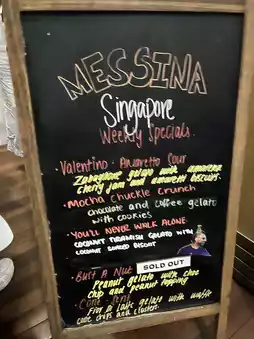 MESSINA
Singapore
Weekly Specials
· Valentino: Amaretto Sour
Zabaglione gelato with amarena
cherry jam and amaretti biscuits.
· Mocha Chuckle Crunch
chocolate and coffee gelato
with cookies
· YOU'LL NEVER WALK ALONE:
COCONUT GELATO WITH
COCONUT BISCUIT
SOLD OUT
· Bust A Nut
Peanut gelato with choc
chip and peanut topping
Fior Di Latte gelato with waffle
cone chips and clusters